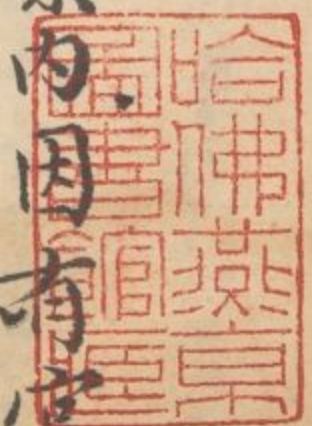 哈佛燕京
圖書館
内因有